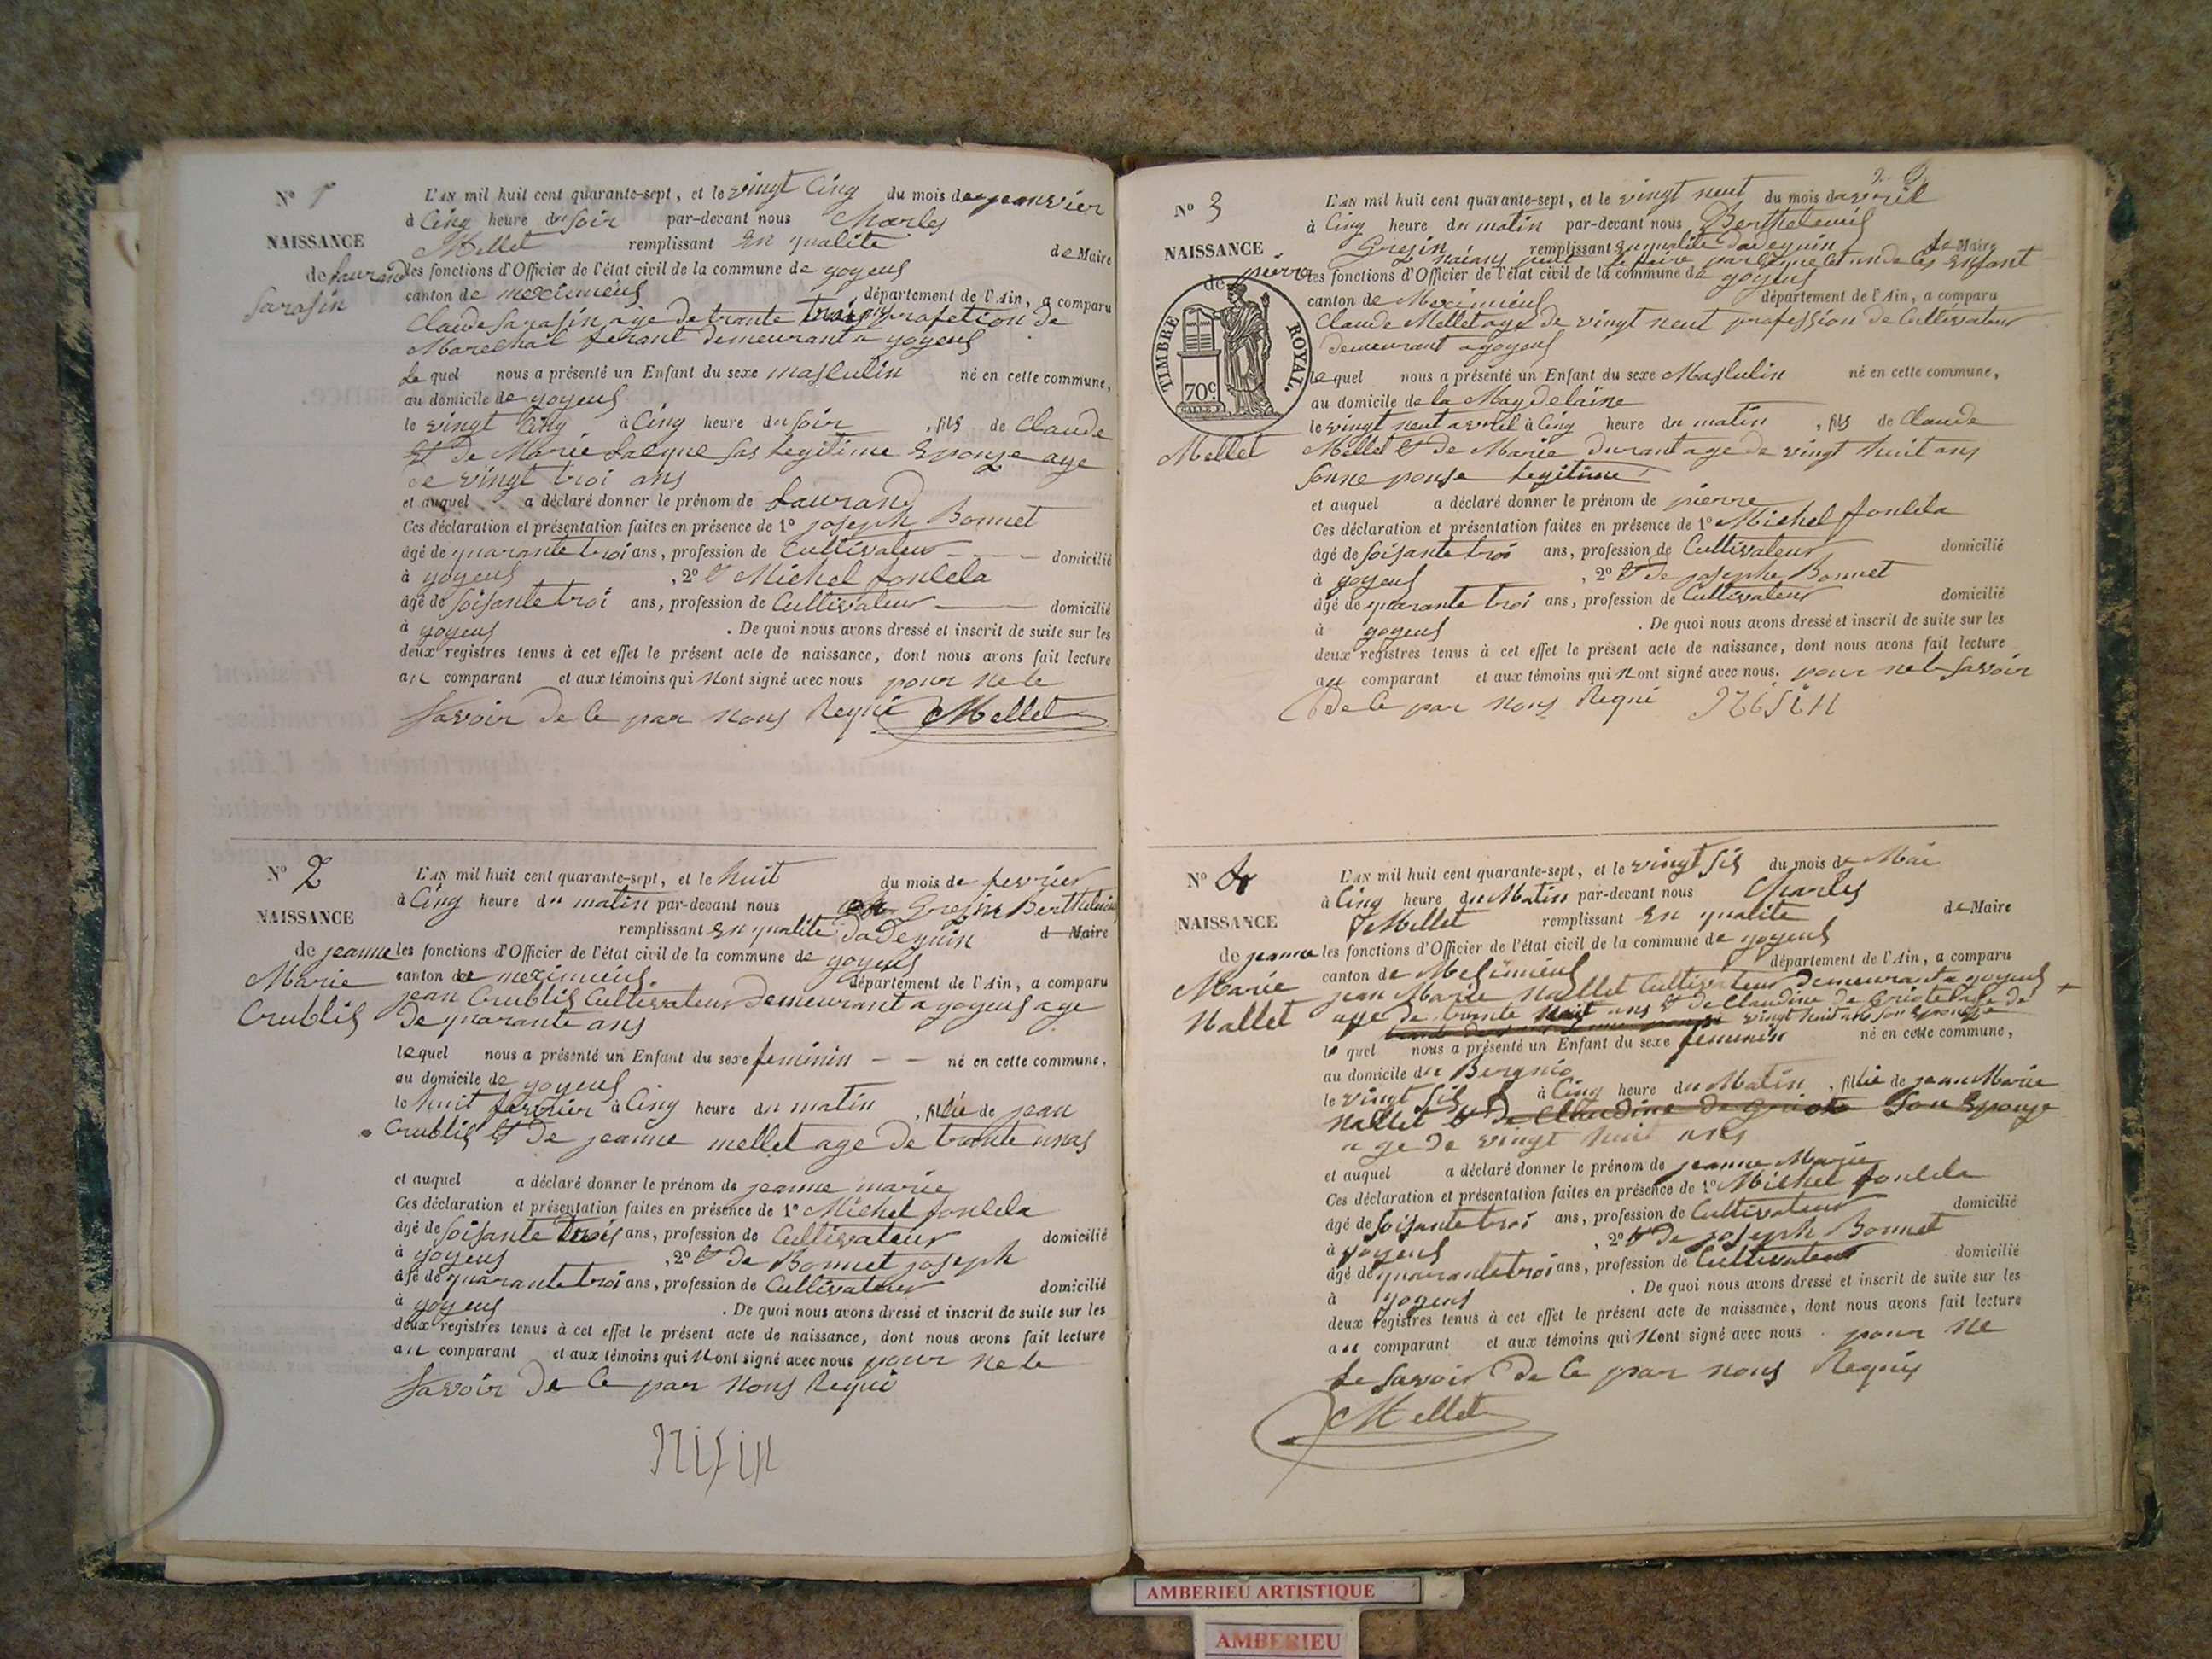 N° 1
NAISSANCE
de Laurand
Sarasin
L'AN mil huit cent quarante-sept, et le vingt Cinq du mois de jeanvier
à Cinq heure du soir par-devant nous Charles
Mellet remplissant En qualite de Maire
les fonctions d'Officier de l'état civil de la commune de yoyeus
canton de meximieus département de l'Ain, a comparu
Claude Sarasin age de trante trois ans profetion de
Marechal ferant demeurant a yoyeus
Le quel nous a présenté un Enfant du sexe masculin né en cette commune,
au domicile de yoyeus
le vingt Cinq à Cinq heure du soir, fils de Claude
Et de Marie Lacque sas legitime Eponse age
de vingt troi ans
et auquel a déclaré donner le prénom de Laurand
Ces déclaration et présentation faites en présence de 1° joseph Bonnet
âgé de quarante troi ans, profession de Cultivateur domicilié
à yoyeus, 2° & Michel fonlela
âgé de soisante troi ans, profession de Cultivateur domicilié
à yoyeus. De quoi nous avons dressé et inscrit de suite sur les
deux registres tenus à cet effet le présent acte de naissance, dont nous avons fait lecture
au comparant et aux témoins qui nont signé avec nous pour ne le
savoir de Ce par nous Requi Mellet
N° 2
NAISSANCE
de jeanne
Marie
Crublis
L'AN mil huit cent quarante-sept, et le huit du mois de fevrier
à Cinq heure du matin par-devant nous Gresin Berthelmie
remplissant En qualite dadequin d Maire
les fonctions d'Officier de l'état civil de la commune de yoyeus
canton de meximieus département de l'Ain, a comparu
jean Crublis Cultivateur demeurant a yoyeus age
de quarante ans
lequel nous a présenté un Enfant du sexe feminin né en cette commune,
au domicile de yoyeus
le huit fevrier à Cinq heure du matin, fillie de jean
Crublis & de jeanne mellet age de trante unas
et auquel a déclaré donner le prénom de jeanne marie
Ces déclaration et présentation faites en présence de 1° Michel fonlela
âgé de soisante trois ans, profession de Cultivateur domicilié
à yoyeus, 2° & de Bonnet joseph
âgé de quarante troi ans, profession de Cultivateur domicilié
à yoyeus. De quoi nous avons dressé et inscrit de suite sur les
deux registres tenus à cet effet le présent acte de naissance, dont nous avons fait lecture
au comparant et aux témoins qui nont signé avec nous pour ne le
savoir de Ce par nous Requi
N° 3
NAISSANCE
de pierre
TIMBRE ROYAL.
70c
Mellet
L'AN mil huit cent quarante-sept, et le vingt neuf du mois davril
à Cinq heure du matin par-devant nous Berthelemis
Gresin remplissant En qualite dadequin de Maire
les fonctions d'Officier de l'état civil de la commune de yoyeus
canton de Meximieus département de l'Ain, a comparu
Claude Mellet age de vingt neuf profession de Cultivateur
demeurant a yoyeus
lequel nous a présenté un Enfant du sexe Masculin né en cette commune,
au domicile de la Magdelaine
le vingt neuf avril à Cinq heure du matin, fils de Claude
Mellet & de Marie durant age de vingt huit ans
sonne ponse legitime
et auquel a déclaré donner le prénom de pierre
Ces déclaration et présentation faites en présence de 1° Michel fonlela
âgé de soisante troi ans, profession de Cultivateur domicilié
à yoyeus, 2° & de josephe Bonnet
âgé de quarante troi ans, profession de Cultivateur domicilié
à yoyeus. De quoi nous avons dressé et inscrit de suite sur les
deux registres tenus à cet effet le présent acte de naissance, dont nous avons fait lecture
au comparant et aux témoins qui nont signé avec nous. pour ne le savoir
de Ce par nous Requi
N° 4
NAISSANCE
de jeanne
Marie
Nallet
L'AN mil huit cent quarante-sept, et le vingt sis du mois de Mai
à Cinq heure du Matin par-devant nous Charles
Mellet remplissant En qualite de Maire
les fonctions d'Officier de l'état civil de la commune de yoyeus
canton de Mesimieus département de l'Ain, a comparu
jean Marie Nallet Cultivateur demeurant a yoyeus
age de trante huit ans & de Claudine de Griote age de
vingt huit ans son Eponse
le quel nous a présenté un Enfant du sexe feminin né en cette commune,
au domicile du
le vingt sis à Cinq heure du Matin, fillie de jean Marie
Nallet & de Claudine de Griote son Eponse
age de vingt huit ans
et auquel a déclaré donner le prénom de jeanne Marie
Ces déclaration et présentation faites en présence de 1° Michel fonlela
âgé de soisante troi ans, profession de Cultivateur domicilié
à yoyeus, 2° & de joseph Bonnet
âgé de quarante troi ans, profession de Cultivateur domicilié
à yoyeus. De quoi nous avons dressé et inscrit de suite sur les
deux registres tenus à cet effet le présent acte de naissance, dont nous avons fait lecture
au comparant et aux témoins qui nont signé avec nous. pour ne
le savoir de Ce par nous Requis
Mellet
AMBERIEU ARTISTIQUE
AMBERIEU